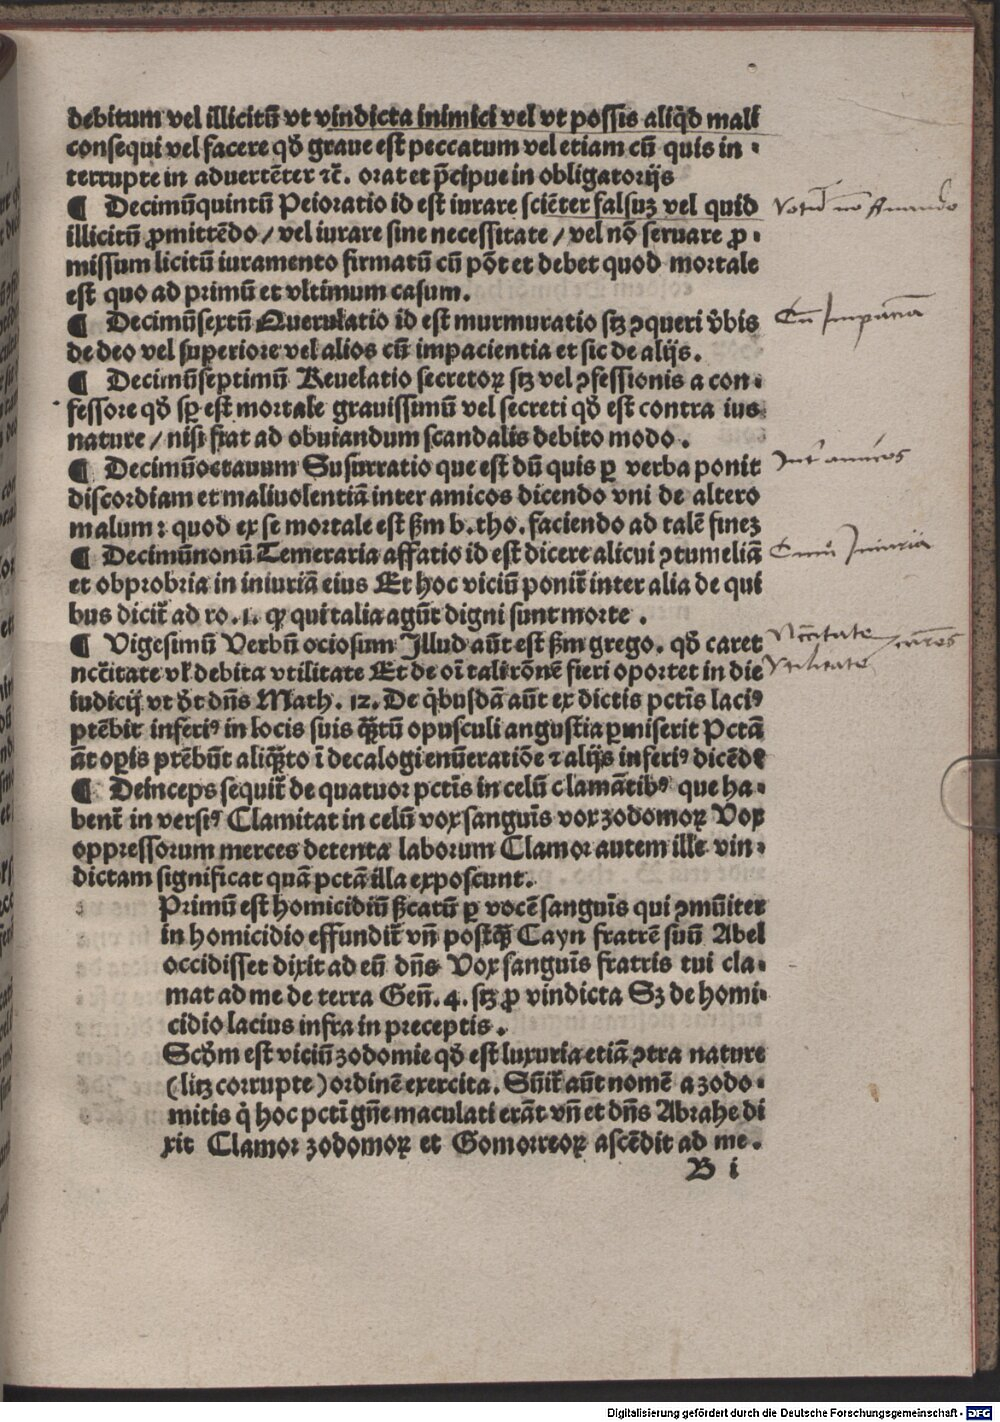 debitum vel illicitū vt vindicta inimici vel vt possis aliq̄d mali
consequi vel facere qḋ graue est peccatum vel etiam cū quis in ·
terrupte in aduertēter ⁊c̄. orat et p̄cipue in obligatorijs
¶ Decimūquintū Peioratio id est iurare sciēter falsuꝫ vel quid
illicitū ꝓmittēdo / vel iurare sine necessitate / vel nō seruare ꝓ ·
missum licitū iuramento firmatū cū pōt et debet quod mortale
est quo ad primū et vltimum casum.
¶ Decimūsextū Querulatio id est murmuratio sꝫ ꝯqueri v̄bis
de deo vel superiore vel alios cū impacientia et sic de alijs.
¶ Decimūseptimū Reuelatio secretoꝝ sꝫ vel ꝯfessionis a con ·
fessore qḋ sp̄ est mortale grauissimū vel secreti qḋ est contra ius
nature / nisi fiat ad obuiandum scandalis debito modo .
¶ Decimūoctauum Susurratio que est dū quis ꝑ verba ponit
discordiam et maliuolentiā inter amicos dicendo vni de altero
malum : quod ex se mortale est ßm b. tho. faciendo ad talē fineꝫ
¶ Decimūnonū Temeraria affatio id est dicere alicui ꝯtumeliā
et obprobria in iniuriā eius Et hoc viciū ponit̄ inter alia de qui
bus dicit̄ ad ro. 1. ꝙ qui talia agūt digni sunt morte .
¶ Vigesimū Verbū ociosum Illud aūt est ßm grego. qḋ caret
nēcitate vł debita vtilitate Et de oī tali rōnē fieri oportet in die
iudicij vt ḋt dn̄s Math. 12. De q̇busdā aūt ex dictis pctīs lacıꝰ
ptēbit inferıꝰ in locis suis q̄ꝫtū opusculi angustia ꝑmiserit Pctā
āt oꝑis ptēbūt aliq̄ꝫto ī decalogi enūeratiōe ⁊ alijs inferıꝰ dicēde
¶ Deinceps sequit̄ de quatuor pctīs in celū clamātibꝰ que ha ·
bent̄ in versıꝰ Clamitat in celū vox sanguīs vox zodomoꝝ Vox
oppressorum merces detenta laborum Clamor autem ille vin ·
dictam significat quā pctā illa exposcunt.
Primū est homicidiū ßcatū ꝑ vocē sanguīs qui ꝯmūiter
in homicidio effundit̄ vn̄ postq̄ꝫ Cayn fratrē suū Abel
occidisset dixit ad eū dn̄s Vox sanguīs fratris tui cla ·
mat ad me de terra Gen̄. 4. sꝫ ꝓ vindicta Sꝫ de homi ·
cidio lacius infra in preceptis .
Scḋm est viciū zodomie qḋ est luxuria etiā ꝯtra nature
(lꝫ corrupte) ordinē exercita. Sūit̄ aūt nomē a zodo ·
mitis q̇ hoc pctī gn̄e maculati erāt vn̄ et dn̄s Abrahe di
xit Clamor zodomoꝝ et Gomorreoꝝ ascēdit ad me .
B i
Cū Impaciā
Int̄ amicos
Cum Iniuria
Nēcitate
Vtilitate
Digitalisierung gefördert durch die Deutsche Forschungsgemeinschaft - DFG